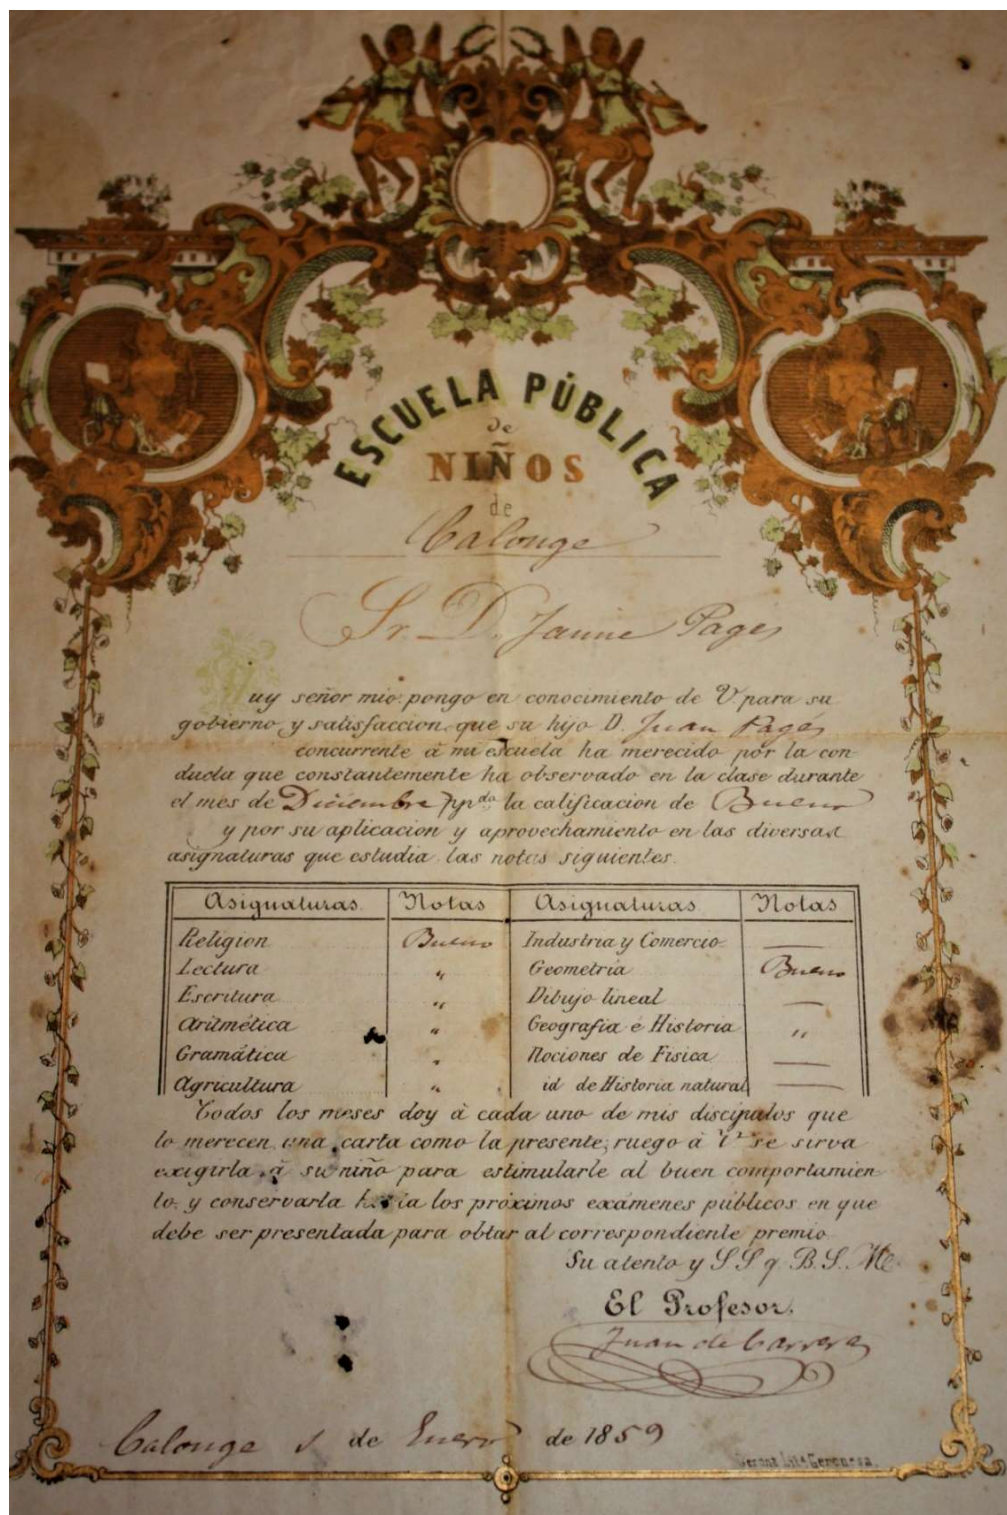 ESCUELA PÚBLICA
de
NIÑOS
de
Calonge
Sr. D. Jaime Pagés
Muy señor mio: pongo en conocimiento de V. para su
gobierno y satisfaccion que su hijo D. Juan Pagés
concurrente á mi escuela ha merecido por la con
ducta que constantemente ha observado en la clase durante
el mes de Diciembre ppdo la calificacion de Bueno
y por su aplicacion y aprovechamiento en las diversas
asignaturas que estudia las notas siguientes.
Asignaturas. Notas Asignaturas Notas
Religion Bueno Industria y Comercio —
Lectura " Geometría Bueno
Escritura " Dibujo lineal —
Aritmética " Geografía é Historia "
Gramática " Nociones de Fisica —
Agricultura " id de Historia natural —
Todos los meses doy á cada uno de mis discípulos que
lo merecen una carta como la presente; ruego á V. se sirva
exigirla á su niño para estimularle al buen comportamien-
to, y conservarla hacia los próximos exámenes públicos en que
debe ser presentada para obtar al correspondiente premio
Su atento y S. S. q. B. S. M.
El Profesor.
Juan de Carrera
Calonge 1 de Enero de 1859
Gerona Lit. Geronesa